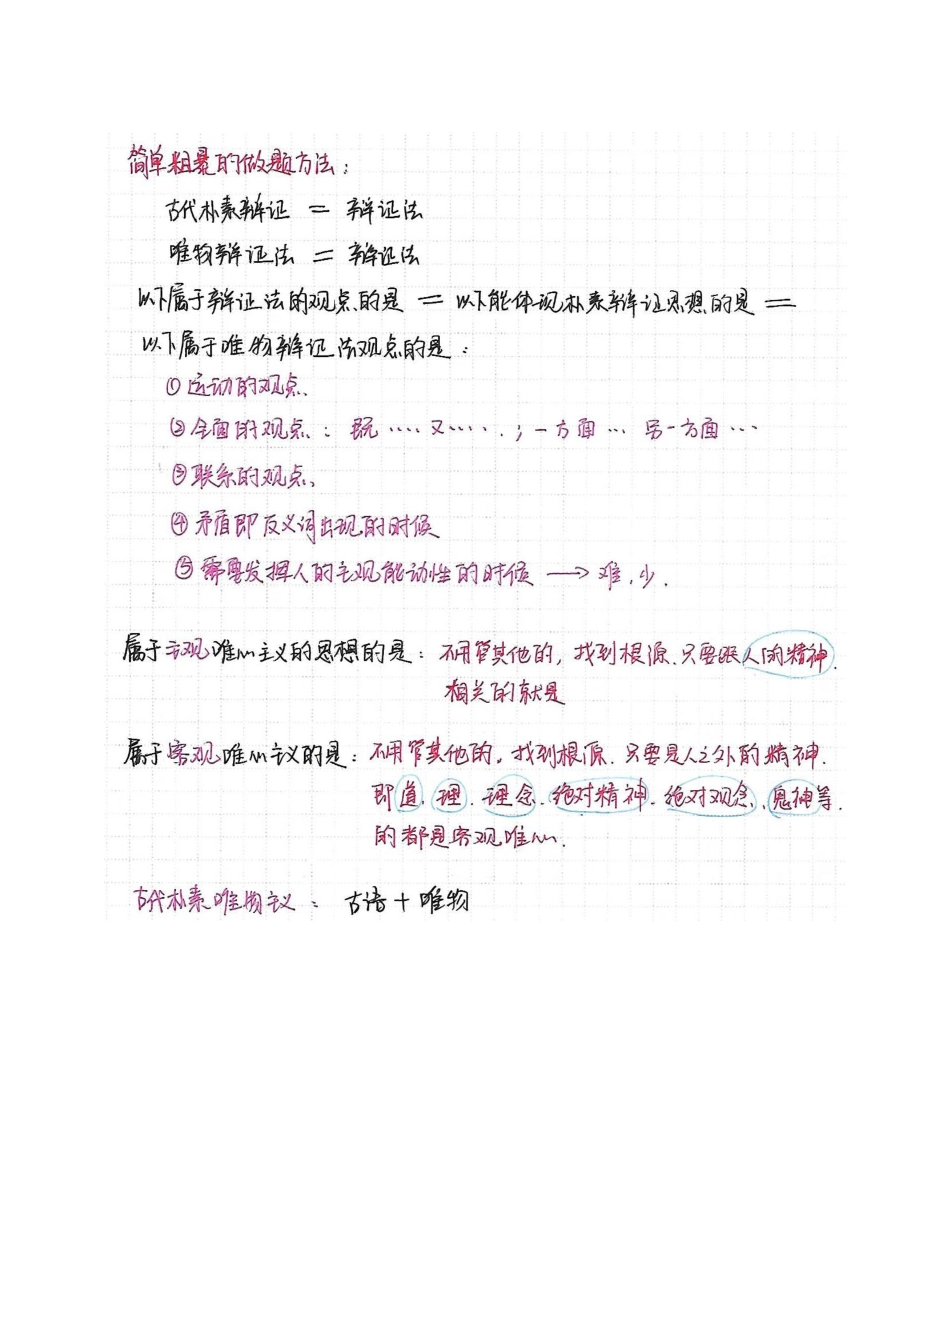 简单粗暴的做题方法：
古代朴素辩证 = 辩证法
唯物辩证法 = 辩证法
以下属于辩证法的观点的是 = 以下能体现朴素辩证思想的是 =
以下属于唯物辩证法观点的是：
①运动的观点、
②全面的观点：既……又……；一方面…另一方面…
③联系的观点、
④矛盾即反义词出现的时候
⑤需要发挥人的主观能动性的时候 → 难，少.
属于主观唯心主义的思想的是：不用管其他的，找到根源、只要跟人的精神
相关的就是
属于客观唯心主义的是：不用管其他的，找到根源、只要是人之外的精神.
即道、理、理念、绝对精神、绝对观念、鬼神等.
的都是客观唯心.
古代朴素唯物主义：古语+唯物